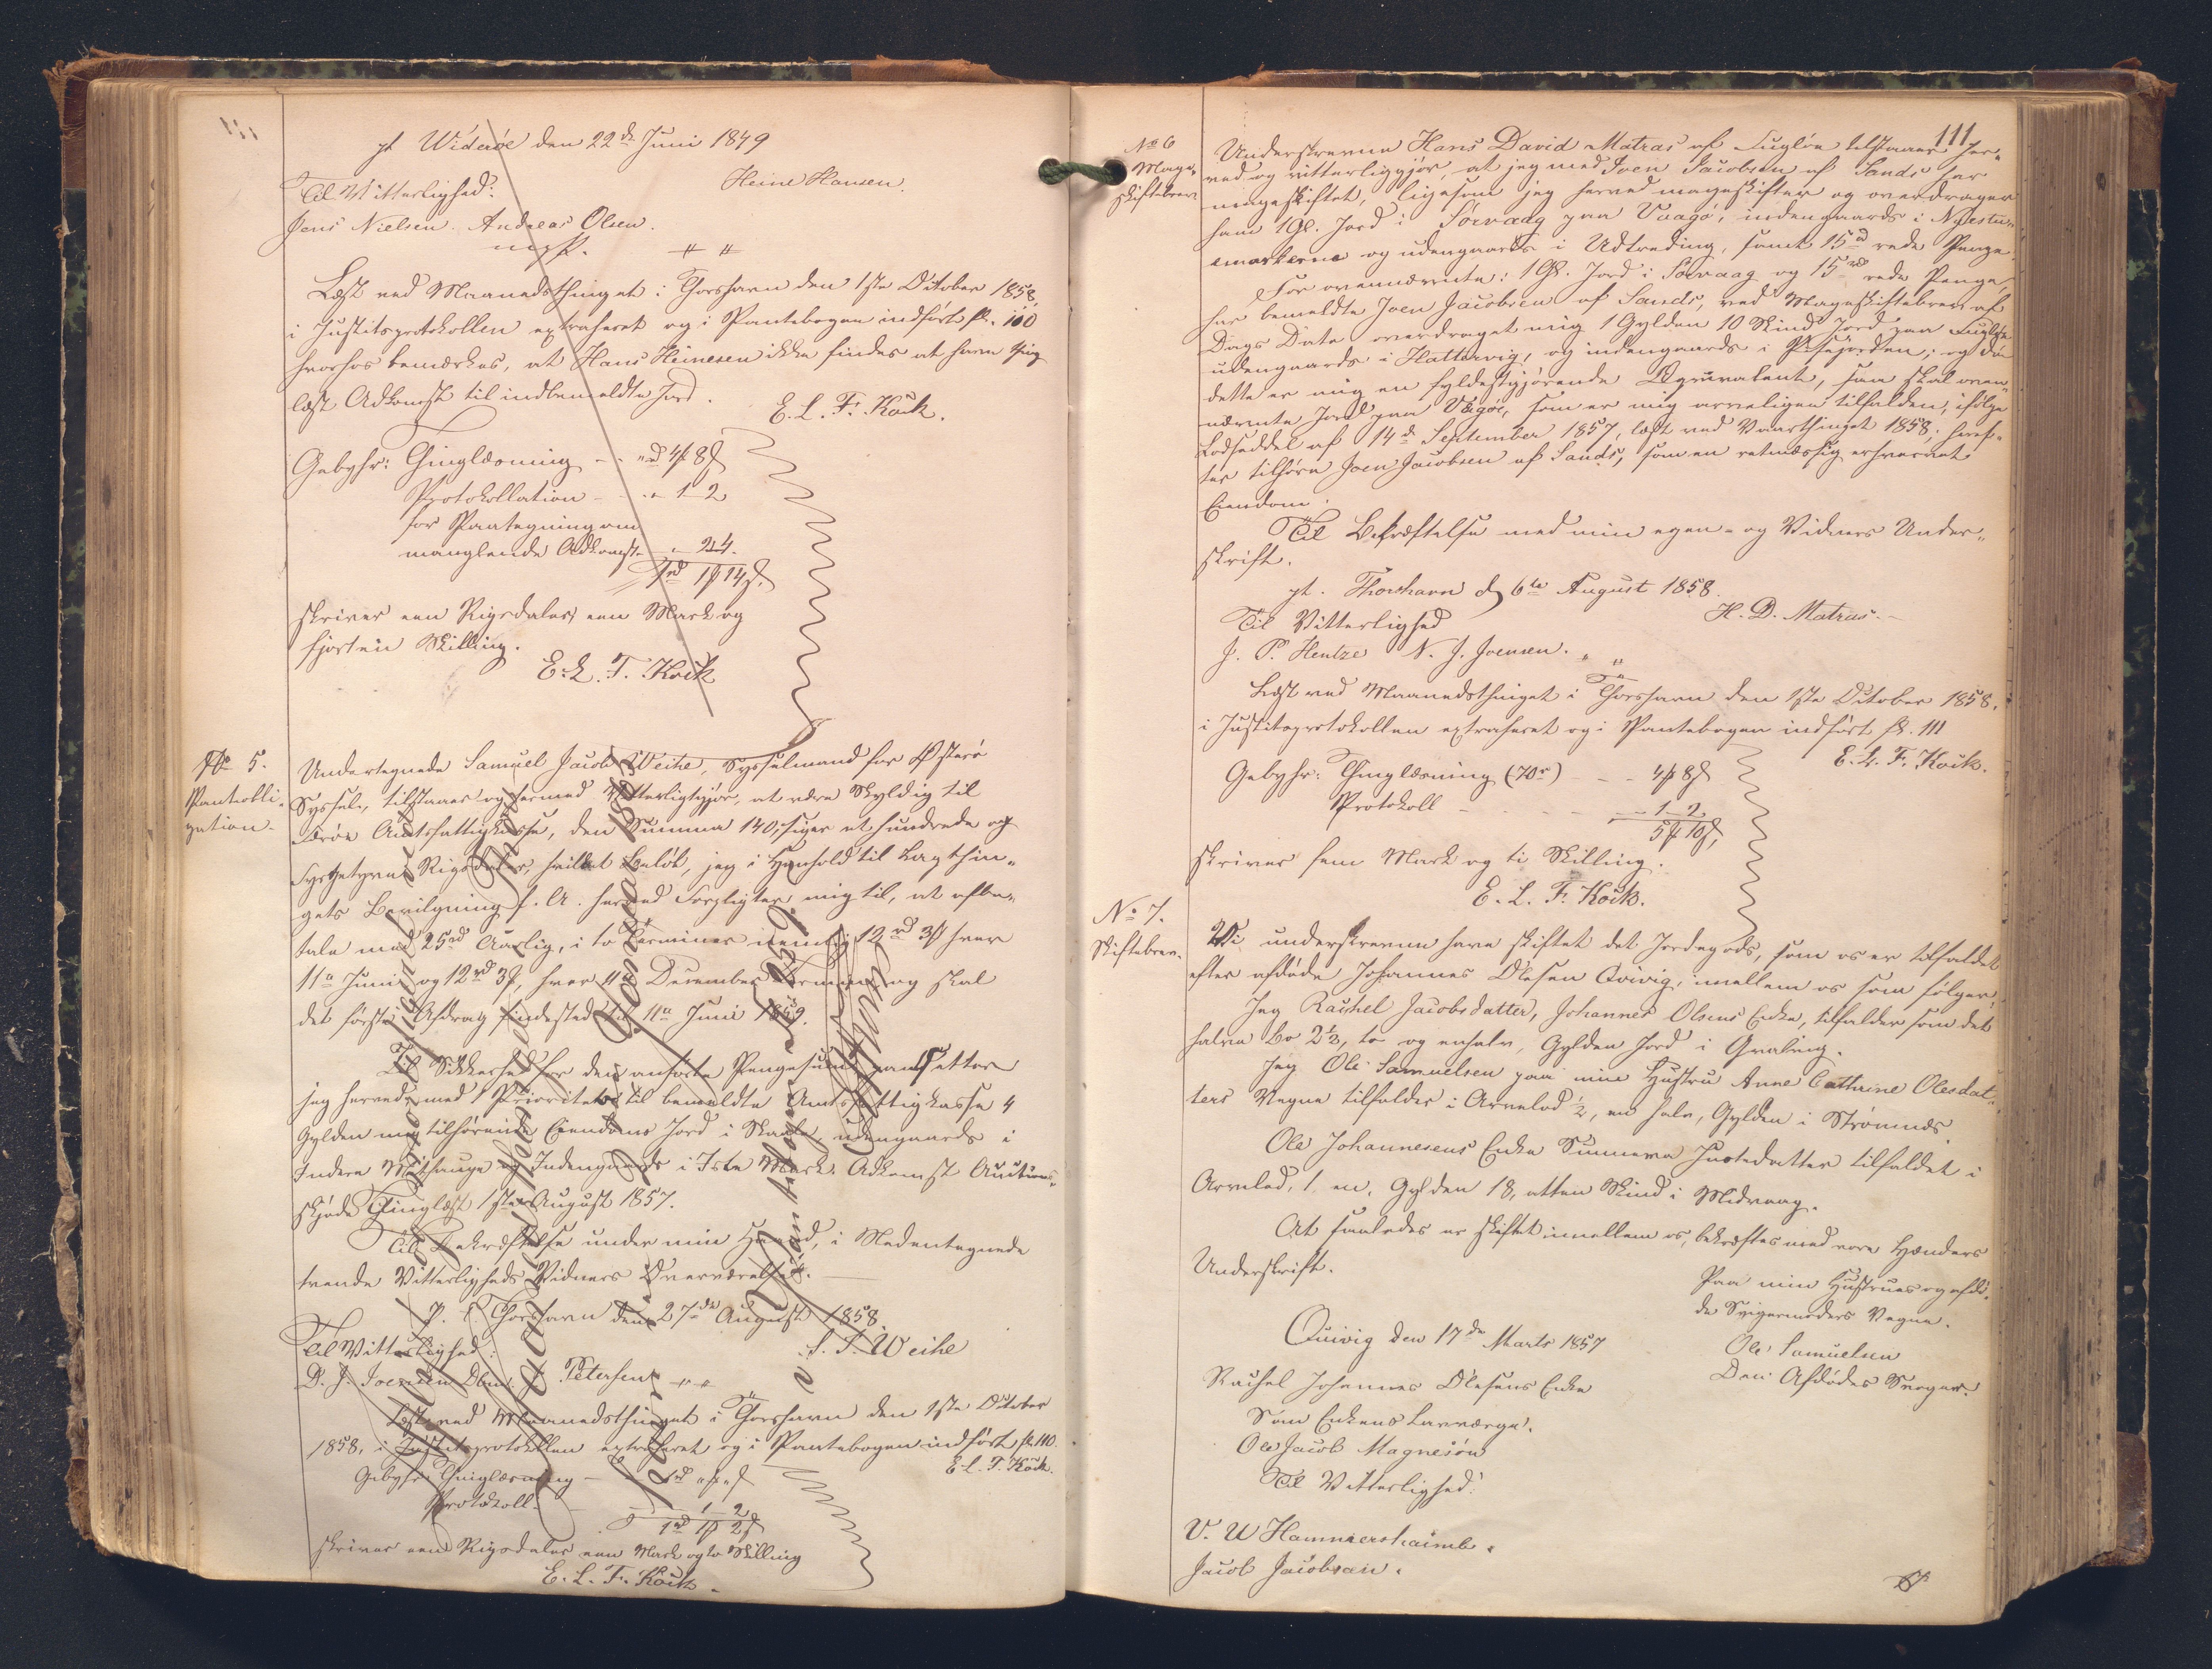 pt Wideröe den 22de Juni 1849
Heine Hansen.
Til Vitterlighed:
Jens Nielsen. Andreas Olsen.
m.f.P. " "
Læst ved Maanedsthinget i Thorshavn den 1ste October 1858,
i Justitsprotokollen extraheret og i Pantebogen indført fl. 110
hvorhos bemærkes, at Hans Heinesen ikke findes at have thing
læst Adkomst til indbemeldte Jord.
E. L. F. Kock.
Gebyhr: Thinglæsning - - " rd 4 ß 8 ß
Protokollation - - - " 1 - 2
for Paategning om
manglende Adkomst - " 24.
1 rd 1 ß 14 ß.
skriver een Rigsdaler een Mark og
fjorten Skilling.
E. L. F. Kock
No 5.
Pantobli-
gation.
Undertegnede Samuel Jacob Weihe, Sysselmand for Østerö
Syssel, tilstaaer og hermed Vitterligtgjør, at være Skyldig til
Færöe Amtsfattigkasse, den Summa 140, siger et hundrede og
Fyrgetyve Rigsdaler, hvilket Beløb, jeg i Henhold til Lagthin-
gets Bevilgning f. A. herved Forpligter mig til, at afbe-
tale med 25 rd Aarlig, i to Terminer nemlig 12 rd 3 ß hver
11te Juni og 12 rd 3 ß, hver 11te December Termin og skal
det første Afdrag finde sted til 11te Juni 1859.
Til Sikkerhed for den anførte Pengesum pantsetter
jeg herved, med 1 Prioritet til bemeldte Amtsfattigkasse 4
Gylden mig tilhørende Eiendoms Jord i Skaale, udengaards i
Indere og Indengaards i Mark. Adkomst Auctions-
skjøde Thinglæst 1ste August 1857.
Til Bekræftelse under min Haand, i Nedentegnede
tvende Vitterligheds Vidners Overværelse.
p. t. Thorshavn den 27de August 1858.
Til Vitterlighed: S. J. Weihe
D. J. Joensen Petersen " "
Læst ved Maanedsthinget i Thorshavn den 1ste October
1858, i Justitsprotokollen extraheret og i Pantebogen indført fl. 110.
E. L. F. Kock.
Gebyhr Thinglæsning - 1 rd " ß " ß
Protokoll. 1 - 2
1 rd 1 ß 2 ß
skriver een Rigsdaler een Mark og to Skilling
E. L. F. Kock.
111
No 6
Mage-
skiftebrev
Underskrevne Hans David Matras af Fuglöe tilstaaer her-
ved og vitterliggjør, at jeg med Joen Jacobsen af Sands har
mageskiftet, ligesom jeg herved mageskifter og overdrager
ham 1 Gl. Jord i Sörvaag paa Vaagö, indengaards i Nyestu-
emarkerne og udengaards i Udtreding, samt 15 rd rede Penge
For ovennævnte: 1 Gl. Jord i Sörvaag og 15 rd rede Penge,
har bemeldte Joen Jacobsen af Sands, ved Mageskiftebrev af
Dags Dato overdraget mig 1 Gylden 10 Skind Jord paa Fuglöe
udengaards i Hattervig, og indengaards i ; og da
dette er mig en fyldestgjørende Equivalent, saa skal oven-
nævnte Jord paa Vaagöe, som er mig arveligen tilfalden, ifølge
Lodseddel af 14de September 1857, læst ved Vaarthinget 1858, heref-
ter tilhøre Joen Jacobsen af Sands, som en retmæssig erhvervet
Eiendom.
Til Bekræftelse med min egen- og Vidners Under-
skrift.
pt. Thorshavn d. 6te August 1858.
Til Vitterlighed H. D. Matras.
J. P. Hentze N. J. Joensen. " "
Læst ved Maanedsthinget i Thorshavn den 1ste October 1858,
i Justitsprotokollen extraheret og i Pantebogen indført fl. 111
E. L. F. Kock.
Gebyhr: Thinglæsning (70 rd) - - 4 ß 8 ß
Protokoll - - - - 1 - 2
5 ß 10 ß,
skriver fem Mark og ti Skilling.
E. L. F. Kock.
No 7.
Skiftebrev.
Vi underskrevne have skiftet det Jordegods, som os er tilfaldet
efter afdøde Johannes Olesen Qvivig, imellem os som følger.
Jeg Rachel Jacobsdatter, Johannes Olsens Enke, tilfalder som det
halve Bo 2½, to og enhalv, Gylden Jord i Qvaling.
Jeg Ole Samuelsen paa min Hustru Anne Cathrine Olesdat-
ters Vegne tilfalder i Arvelod ½, en halv, Gylden i Strömnæs.
Ole Johannesens Enke Sunneva Justedatter tilfaldet i
Arvelod, 1. en, Gylden 18, atten Skind i Midvaag.
At saaledes er skiftet imellem os, bekræftes med vore Hænders
Underskrift.
Paa min Hustrues og afdö-
de Svigermoders Vegne.
Qvivig den 17de Marts 1857
Ole Samuelsen
Den Afdødes Svoger.
Rachel Johannes Olesens Enke
Som Enkens Lavværge.
Ole Jacob Magnesön
Til Vitterlighed:
V. U Hammershaimb.
Jacob Jacobsen.